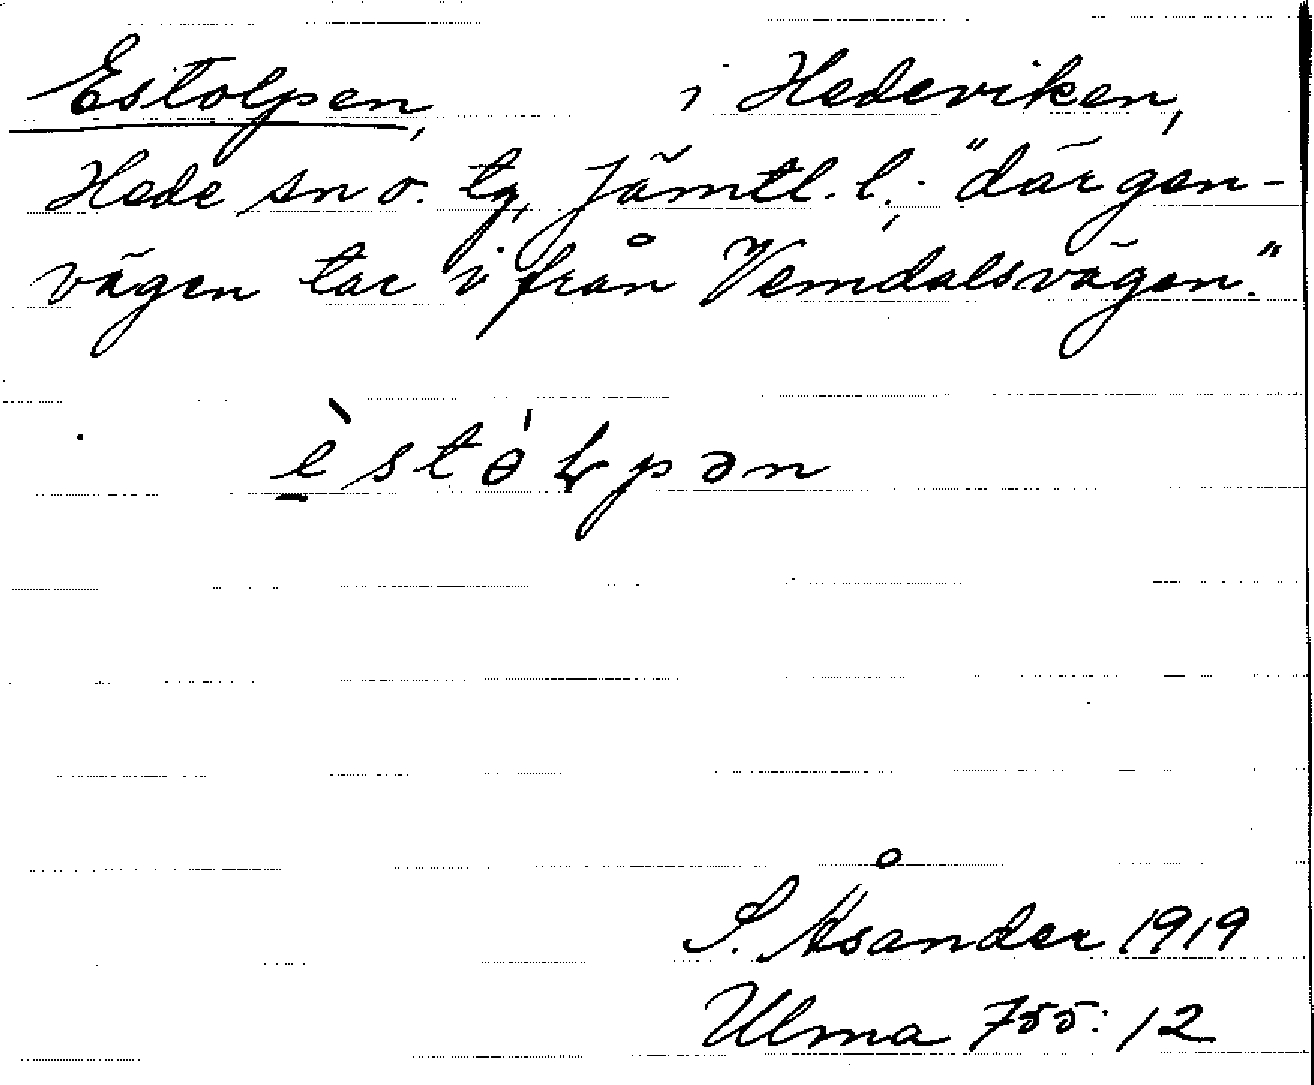 Estolpen, i Hedeviken,
Hede sn o. tg, Jämtl. l.; "där gen-
vägen tar v. från Vemdalsvägen."
S. Åsander 1919
Ulma 755:12